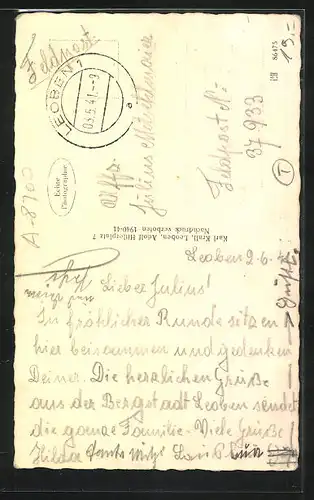 Feldpost
LEOBEN 1
03.6.41.-9
a
Uffz.
Julius
Feldpost Nr.
37 933
T
86475
19,-
Echte
Photographie
A-8700
Karl Krall, Leoben, Adolf Hitlerplatz 7
Nachdruck verboten 1940-41
Leoben 2.6.
Lieber Julius!
In fröhlicher Runde sitzen
hier beisammen und gedenken
Deiner. Die herzlichen Grüße
aus der Bergstadt Leoben sendet
die ganze Familie. Viele Grüße
Hilda